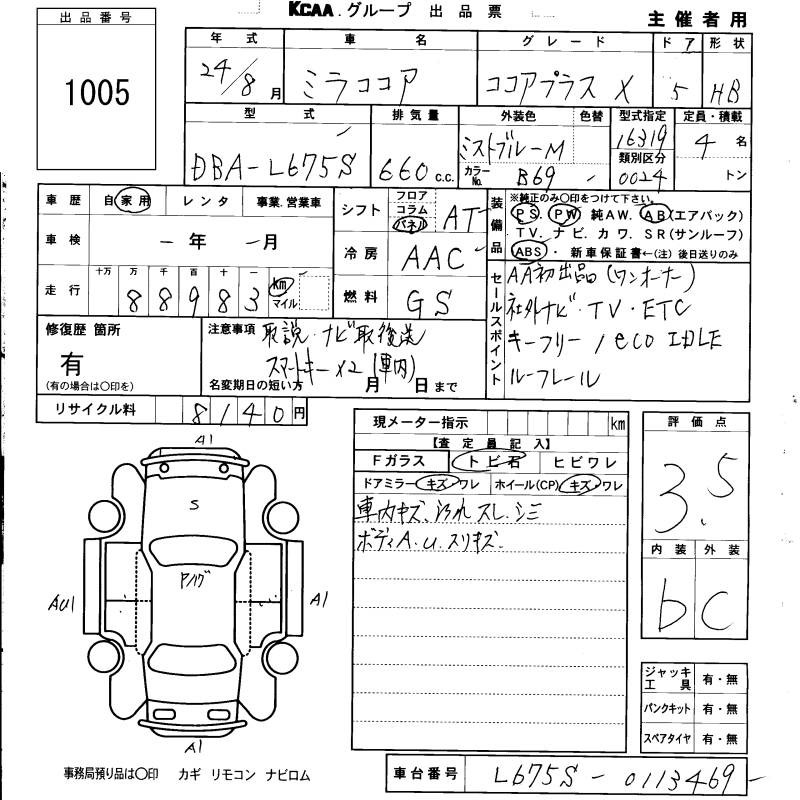 KCAA.グループ 出品票
主催者用
出品番号
1005
年式 車名 グレード ドア 形状
24/8月 ミラココア ココアプラス X 5 HB
型式 排気量 外装色 色替 型式指定 定員・積載
DBA-L675S 660c.c. ミストブルーM 16319 4名
カラーNo. B69 類別区分 0024 トン
車歴 自家用 レンタ 事業.営業車
シフト フロア コラム パネル AT
装備品 ※純正のみ〇印をつけて下さい。
PS. PW 純AW. AB(エアバック)
TV. ナビ. カワ. SR(サンルーフ)
ABS・ 新車保証書←(注)後日送りのみ
車検 ー年 ー月
冷房 AAC
走行 十万 万 千 百 十 一 km マイル
88983
燃料 GS
セールスポイント
AA初出品(ワンオーナー)
社外ナビ・TV・ETC
キーフリー/eco IDLE
ルーフレール
修復歴 箇所
有
(有の場合は〇印を)
注意事項 取説・ナビ取後送
スマートキーx2(車内)
名変期日の短い方 月 日まで
リサイクル料 8140円
現メーター指示 km
【査定員記入】
Fガラス トビ石 ヒビワレ
ドアミラー キズ.ワレ ホイール(CP) キズ.ワレ
車内キズ、汚れ スレ.シミ
ボディA.U.スリキズ.
評価点
3.5
内装 外装
b C
A1
S
AU1
A1
A1
ジャッキ工具 有・無
パンクキット 有・無
スペアタイヤ 有・無
事務局預り品は〇印 カギ リモコン ナビロム
車台番号 L675S-0113469-